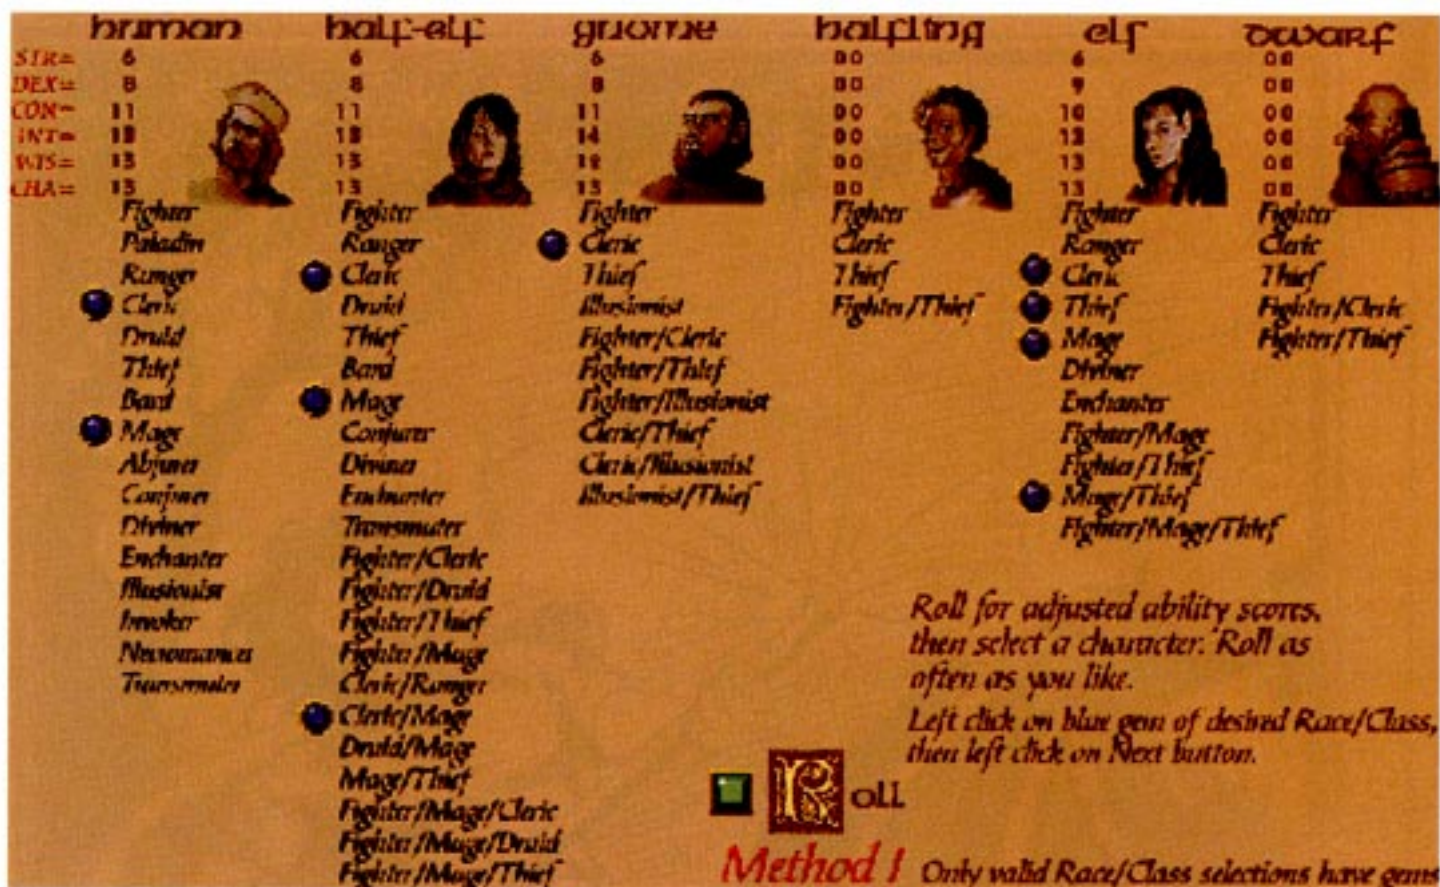 human
STR= 6
DEX= 8
CON= 11
INT= 13
WIS= 13
CHA= 13
Fighter
Paladin
Ranger
Cleric
Druid
Thief
Bard
Mage
Abjurer
Conjurer
Diviner
Enchanter
Illusionist
Invoker
Necromancer
Transmuter
half-elf
6
8
11
13
13
13
Fighter
Ranger
Cleric
Druid
Thief
Bard
Mage
Conjurer
Diviner
Enchanter
Transmuter
Fighter/Cleric
Fighter/Druid
Fighter/Thief
Fighter/Mage
Cleric/Ranger
Cleric/Mage
Druid/Mage
Mage/Thief
Fighter/Mage/Cleric
Fighter/Mage/Druid
Fighter/Mage/Thief
gnome
6
8
11
14
12
13
Fighter
Cleric
Thief
Illusionist
Fighter/Cleric
Fighter/Thief
Fighter/Illusionist
Cleric/Thief
Cleric/Illusionist
Illusionist/Thief
halfling
00
00
00
00
00
00
Fighter
Cleric
Thief
Fighter/Thief
elf
6
9
10
13
13
13
Fighter
Ranger
Cleric
Thief
Mage
Diviner
Enchanter
Fighter/Mage
Fighter/Thief
Mage/Thief
Fighter/Mage/Thief
dwarf
00
00
00
00
00
00
Fighter
Cleric
Thief
Fighter/Cleric
Fighter/Thief
Roll for adjusted ability scores,
then select a character. Roll as
often as you like.
Left click on blue gem of desired Race/Class,
then left click on Next button.
Roll
Method I Only valid Race/Class selections have gems